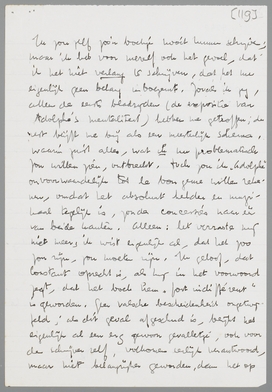 [119]
Ik zou zelf zo'n boekje nooit kunnen schrijven,
maar ik heb voor mezelf ook het gevoel, dat
ik het niet verlang te schrijven, dat het me
eigenlijk geen belang inboezemt. Zoals ik zei,
alleen de eerste bladzijden (de expositie van
Adolphe's mentaliteit) hebben me getroffen; de
rest blijft me bij als een menselijk schema,
waarin juist alles, wat ik nu problematisch
zou willen zien, ontbreekt. Toch zou ik Adolphe
onvoorwaardelijk tot de bon genre willen reke-
nen, omdat het absoluut helder en
maal tegelijk is, zonder concessies naar een
van beide kanten. Alleen: het verraste mij
niet meer, ik wist eigenlijk al, dat het zoo
zou zijn, zou moeten zijn. Ik geloof, dat
Constant oprecht is, als hij in het voorwoord
zegt, dat het boek hem "fort indifférent"
is geworden. Geen valsche bescheidenheid
als dit geval afgerond is, heeft het
eigenlijk al een erg gewoon gevalletje, ook voor
den schrijver zelf, volkomen eerlijk verantwoord,
maar niet belangrijker geworden, dan het op